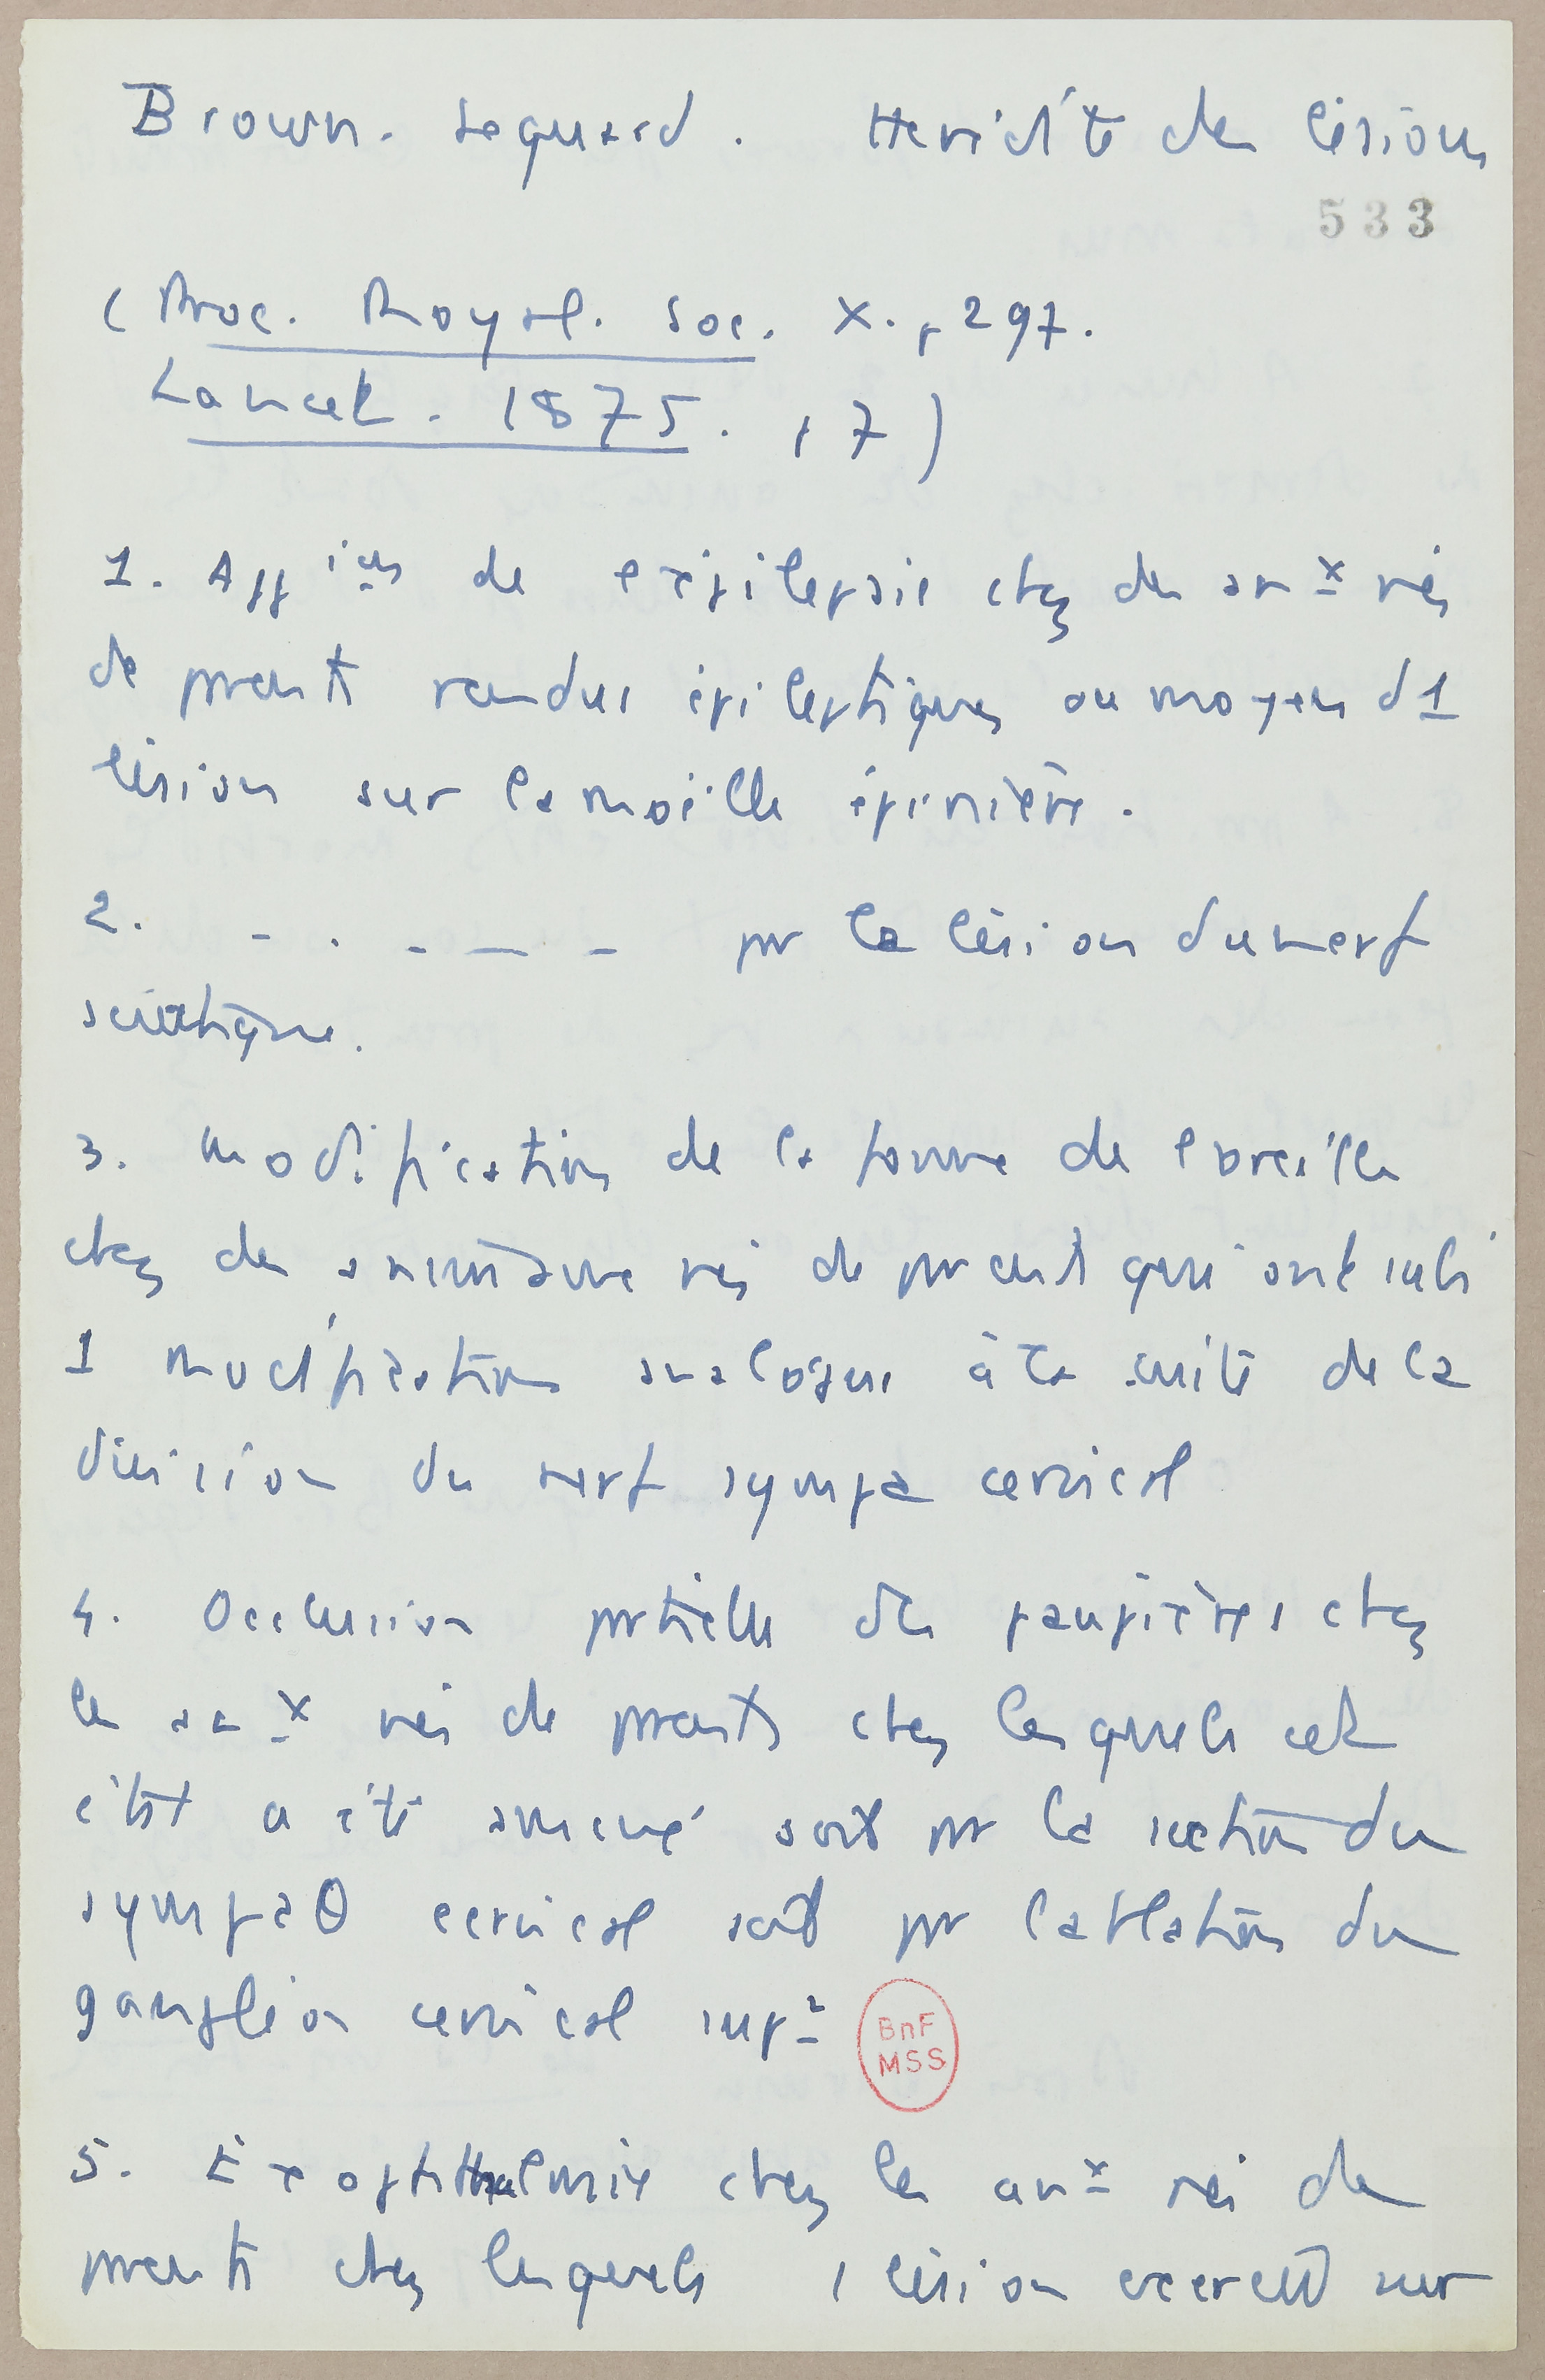 Brown. Sequard. Heredité des lésions
533
( Proc. Royal. Soc. X. p 297.
Lancet. 1875. p 7 )
1. App ions de epilepsie chez des anx nés
de parents rendus épileptiques au moyen d1
lésion sur la moëlle épinière.
2. - . - — - par la lésion du nerf
sciatique.
3. Modification de la forme de l'oreille
chez des animaux nés de parents qui ont subi
1 modification analogue à la suite de la
division du nerf sympa cervical
4. Occlusion partielle des paupières chez
les anx nés de parents chez lesquels cet
état a été amené soit par la section du
sympaθ cervical soit par l'ablation du
ganglion cervical supr
BnF
MSS
5. Exophthalmie chez les anx nés de
parents chez lesquels 1 lésion exercée sur